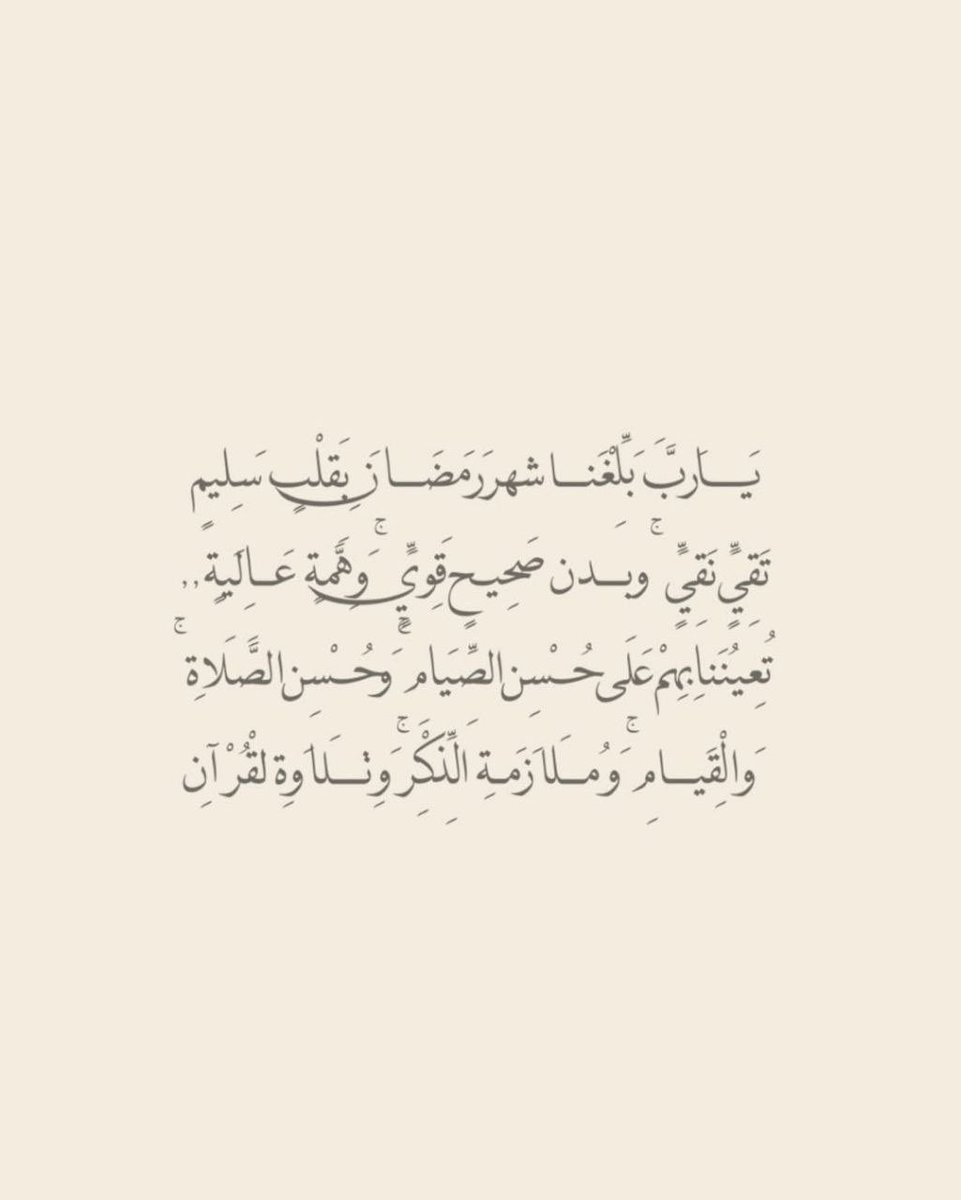 يَـــارَبَّ بَلِّغْنَـــا شهر رَمَضَـــانَ بِقَلْبٍ سَلِيمٍ
تَقِيٍّ نَقِيٍّ ۚ وبـــدن صَحِيـحٍ قَوِيٍّ ۚ وَهَّمِةٍ عَـــالِيَةٍ ,,
تُعِينُنَا بِهِمْ عَلَى حُـــسْنِ الصِّيَامِ ۚ وَحُـــسْنِ الصَّلَاةِ ۚ
وَالْقِيَـــامِ ۚ وَمُـــلَازَمَـةِ الذِّكْرِ ۚ وَتِـــلَاوَةِ لقُرْآنِ